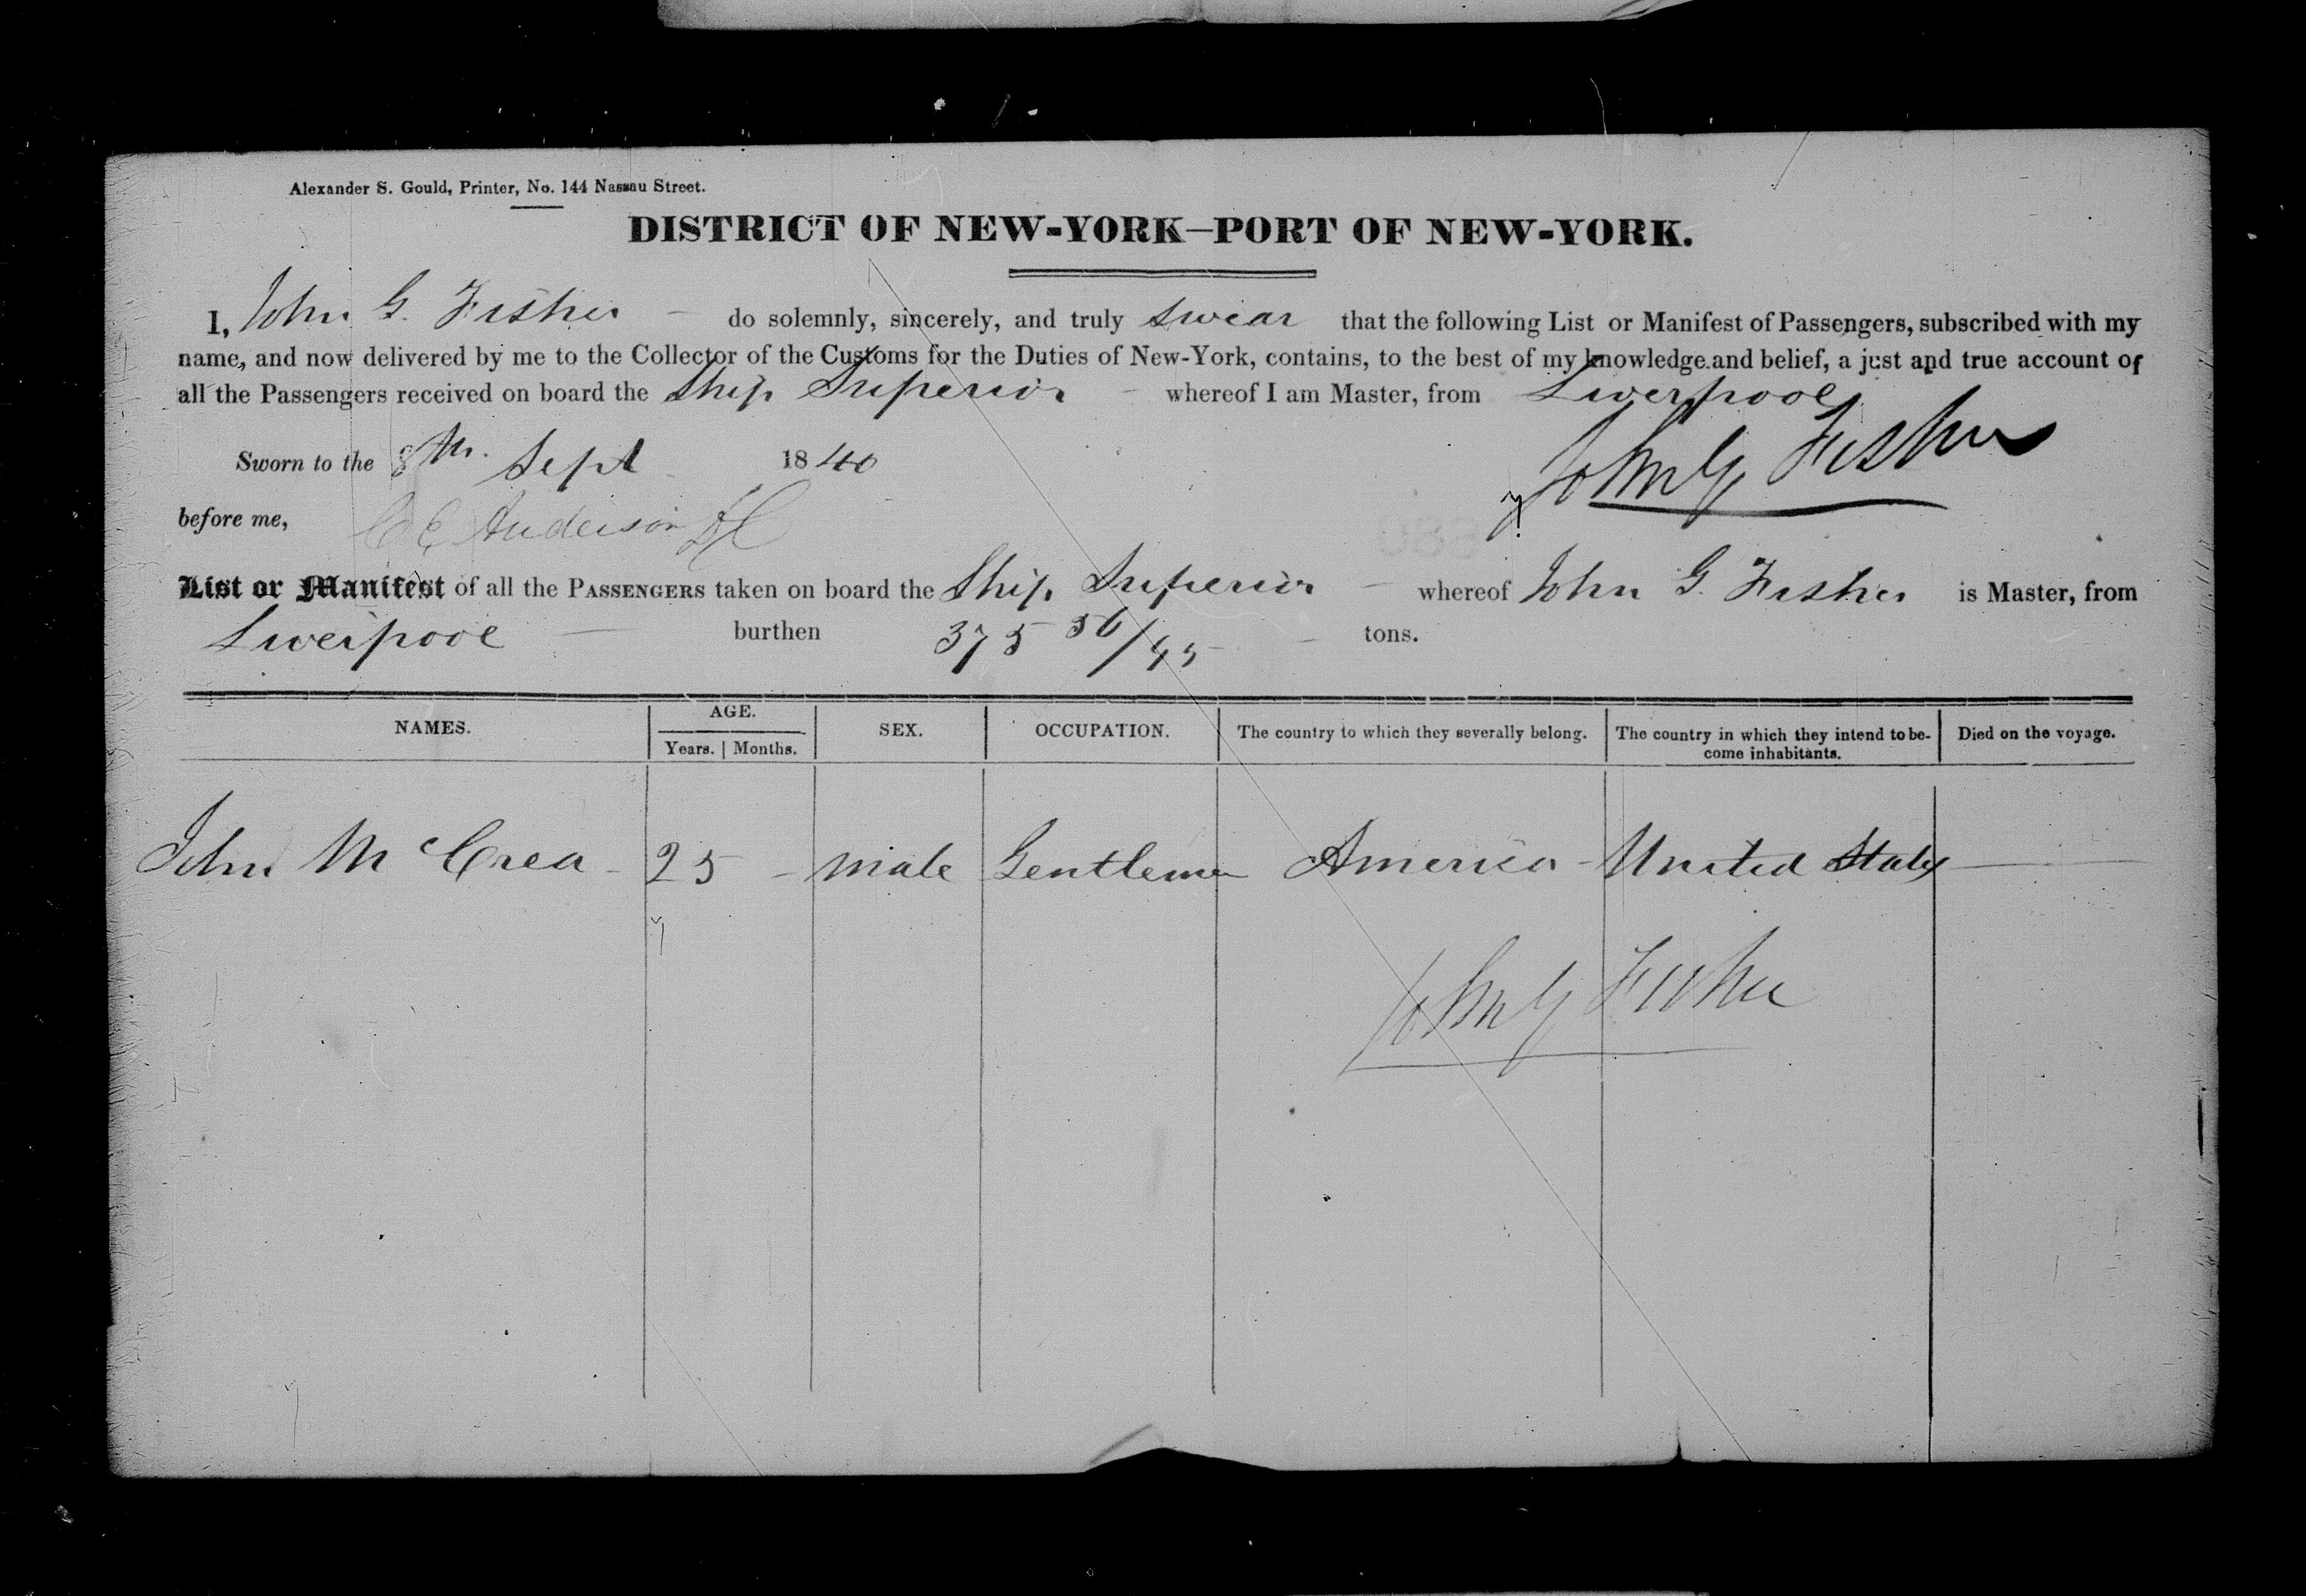 Alexander S. Gould, Printer, No. 144 Nassau Street.
DISTRICT OF NEW-YORK—PORT OF NEW-YORK.
I, John G. Fisher — do solemnly, sincerely, and truly swear that the following List or Manifest of Passengers, subscribed with my
name, and now delivered by me to the Collector of the Customs for the Duties of New-York, contains, to the best of my knowledge and belief, a just and true account of
all the Passengers received on board the Ship Superior — whereof I am Master, from Liverpool
John G Fisher
Sworn to the 8th. Sept 1840
before me, C E Anderson DC
List or Manifest of all the PASSENGERS taken on board the Ship Superior — whereof John G. Fisher is Master, from
Liverpool — burthen 375 56/95 tons.
NAMES. AGE. SEX. OCCUPATION. The country to which they severally belong. The country in which they intend to be- Died on the voyage.
Years. Months. come inhabitants.
John McCrea - 25 - male Gentleman America - United States —
John G Fisher